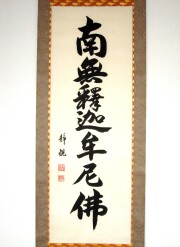 南無釋迦牟尼佛
静観